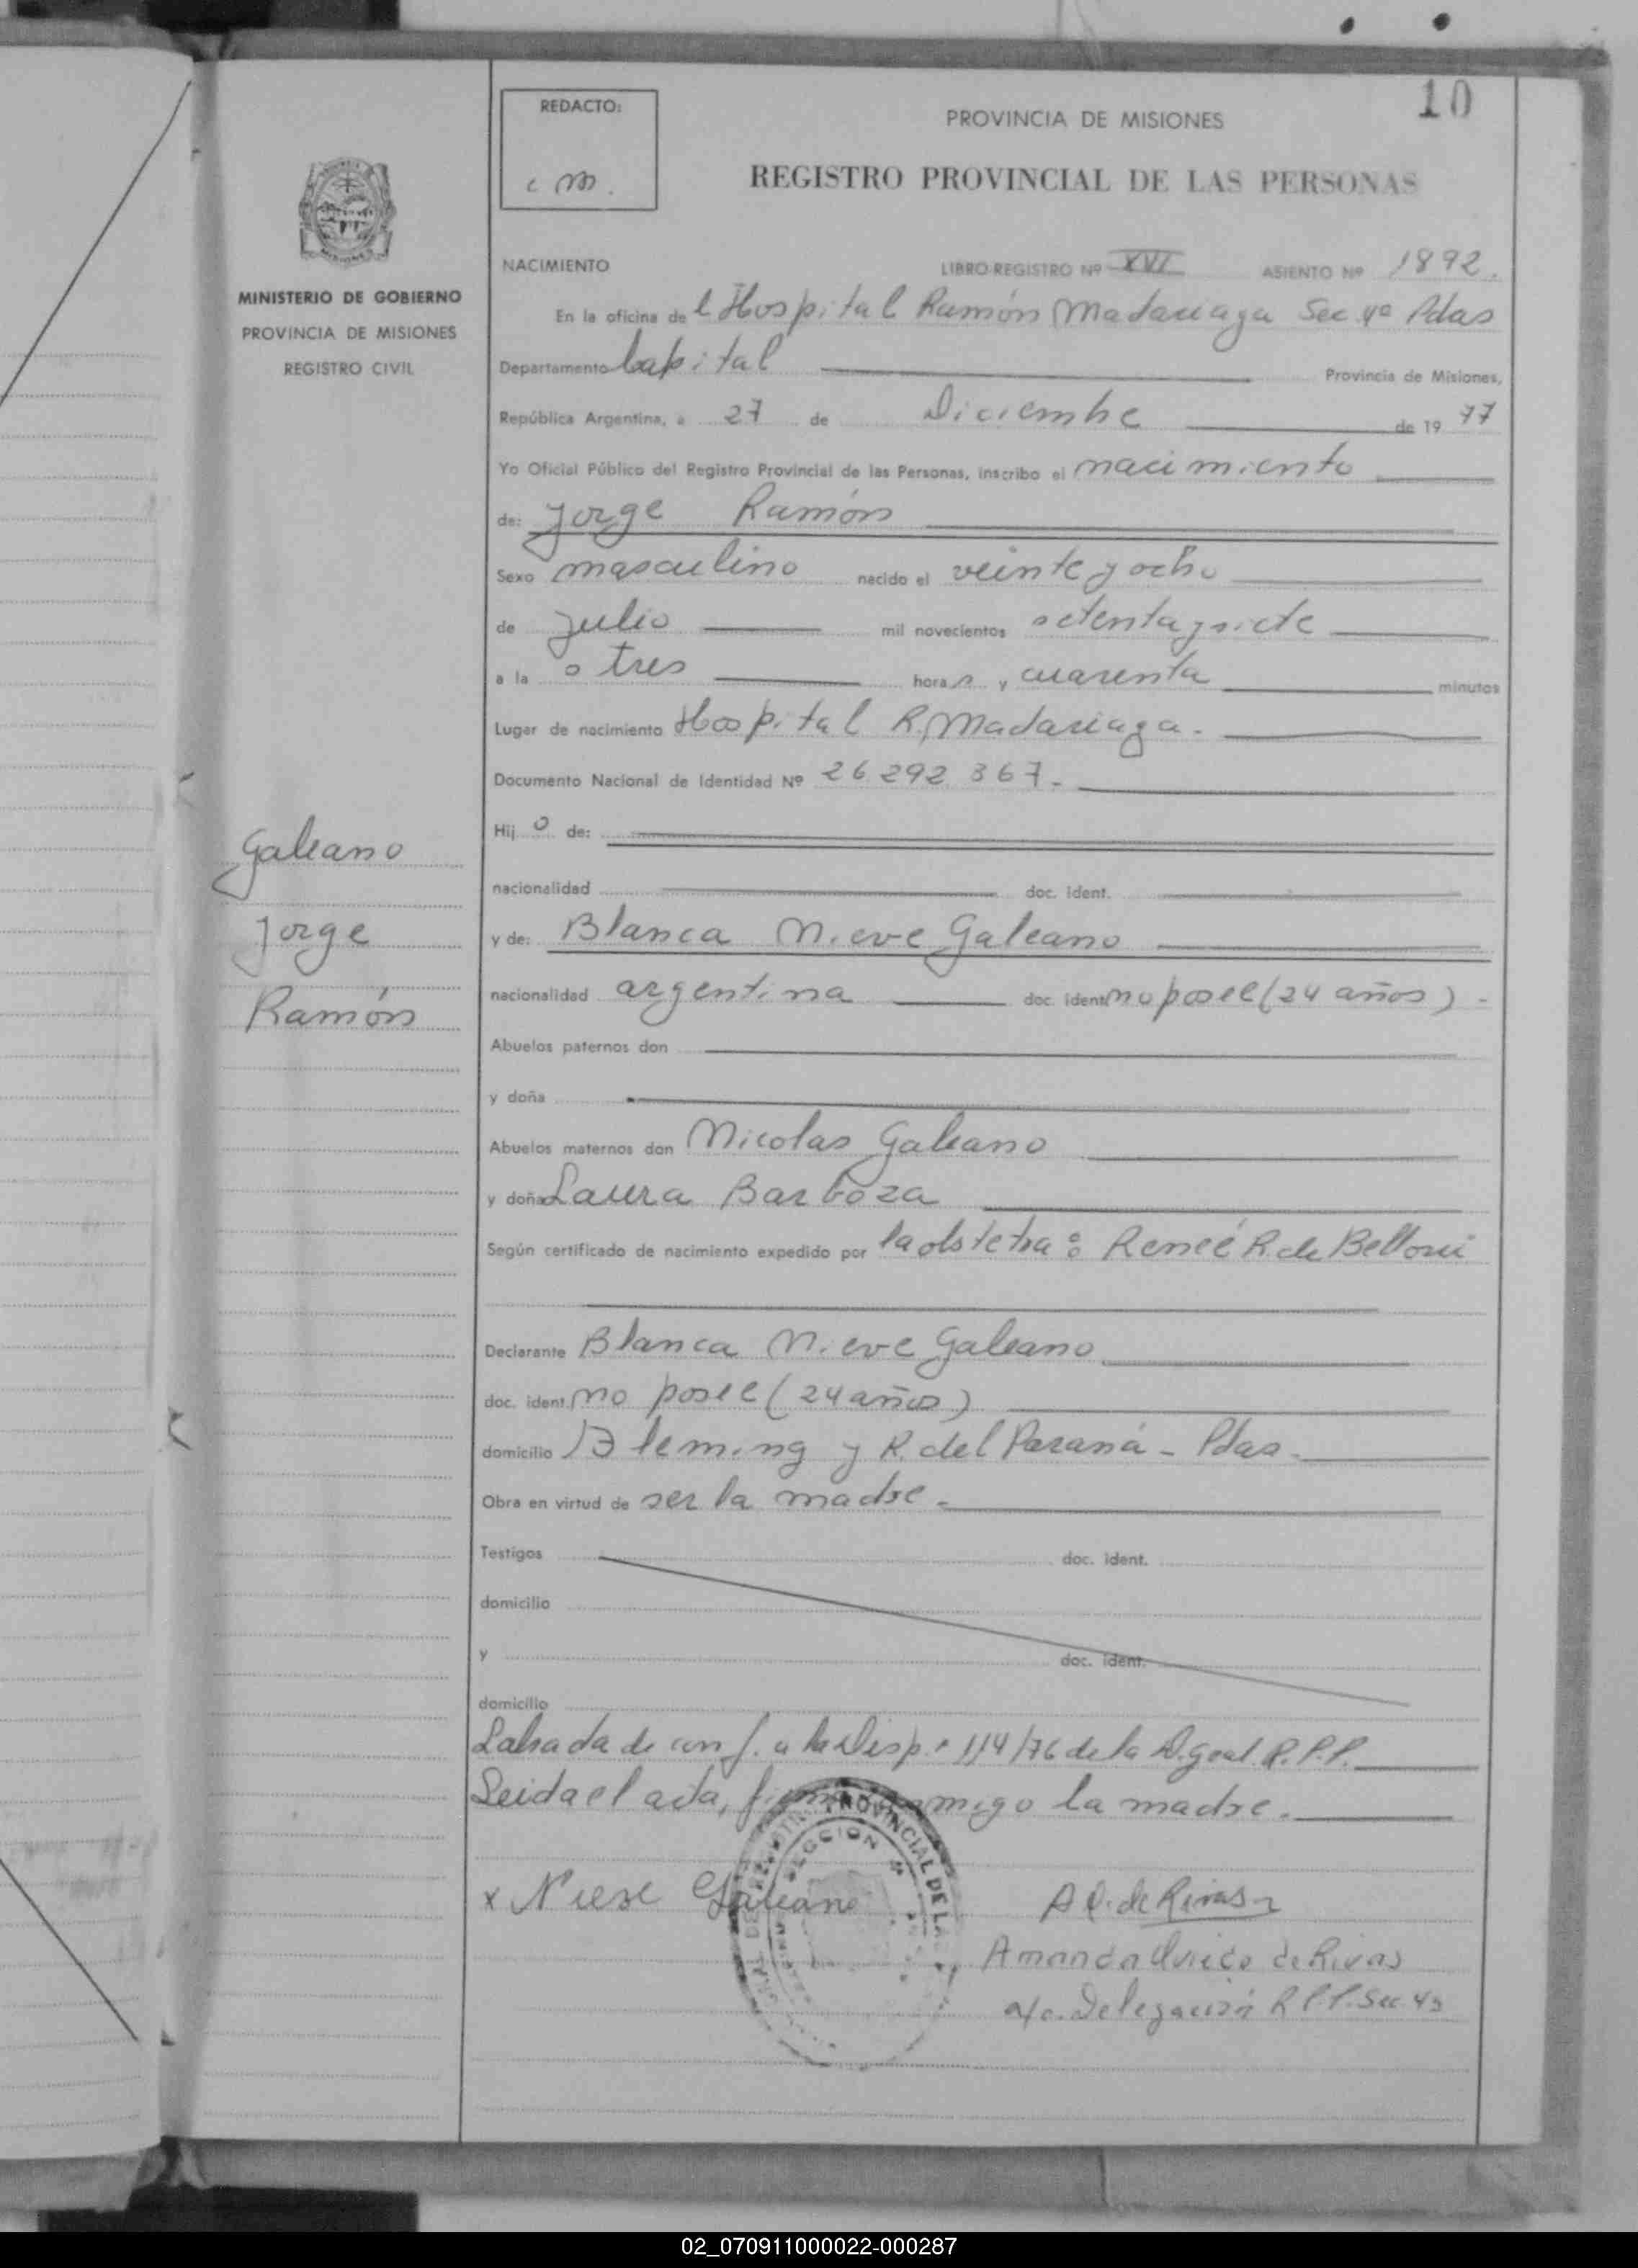 10
REDACTO:
c m.
PROVINCIA DE MISIONES
REGISTRO PROVINCIAL DE LAS PERSONAS
MINISTERIO DE GOBIERNO
PROVINCIA DE MISIONES
REGISTRO CIVIL
Galeano
Jorge
Ramón
NACIMIENTO LIBRO REGISTRO Nº XVI ASIENTO Nº 1892.
En la oficina del Hospital Ramón Madariaga Sec 4ª Pdas
Departamento Capital Provincia de Misiones,
República Argentina, a 27 de Diciembre de 19 77
Yo Oficial Público del Registro Provincial de las Personas, inscribo el nacimiento
de: Jorge Ramón
Sexo masculino nacido el veinte y ocho
de Julio mil novecientos setenta y siete
a la s tres hora s y cuarenta minutos
Lugar de nacimiento Hospital R. Madariaga.
Documento Nacional de Identidad Nº 26 292 367.-
Hij o de:
nacionalidad doc. ident.
y de: Blanca Nieve Galeano
nacionalidad argentina doc. ident. no posee (24 años) -
Abuelos paternos don
y doña
Abuelos maternos don Nicolas Galeano
y doña Laura Barboza
Según certificado de nacimiento expedido por la obstetra: Reneé R. de Belloni
Declarante Blanca Nieve Galeano
doc. ident. no posee (24 años)
domicilio Fleming y R. del Paraná - Pdas.
Obra en virtud de ser la madre.
Testigos doc. ident.
domicilio
y doc. ident.
domicilio
Labrada de conf. a la Disp. 114/76 de la D. gral. R.P.P.
Leida el acta, firma conmigo la madre.
x Nieve Galeano
A Q. de Rivas
PROVINCIAL DE LA
SECCION 4
Amanda de Rivas
a/c. Delegación R P.P. Sec. 4ª
02_070911000022-000287